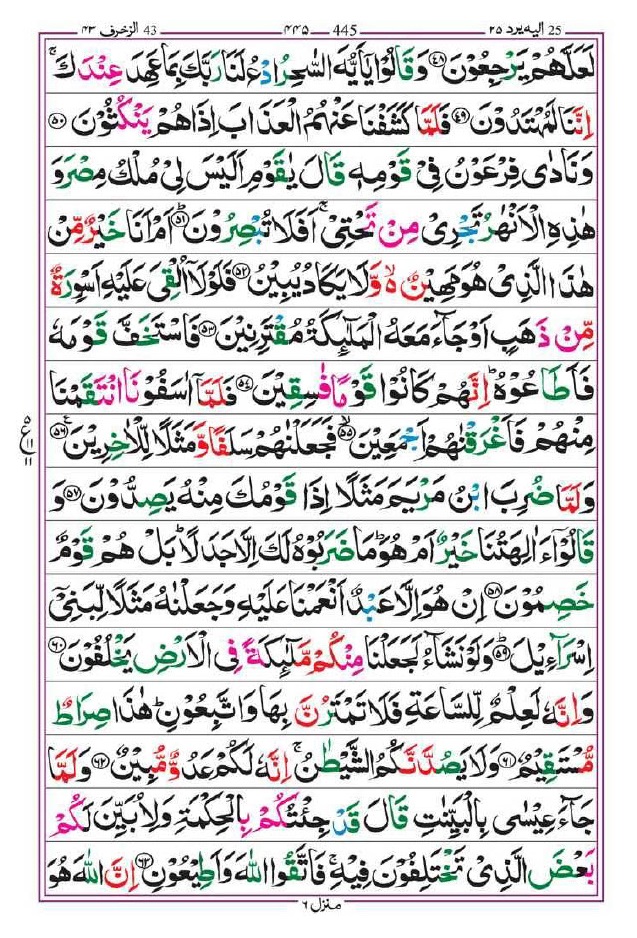 25 الیه یرد ۲۵ 445 ۴۴۵ 43 الزخرف ۴۳
لَعَلَّهُمْ يَرْجِعُوْنَ ﴿۴۸﴾ وَقَالُوْا يٰۤاَيُّهَ السّٰحِرُ ادْعُ لَنَا رَبَّكَ بِمَا عَهِدَ عِنْدَكَ ۚ
اِنَّنَا لَمُهْتَدُوْنَ ﴿۴۹﴾ فَلَمَّا كَشَفْنَا عَنْهُمُ الْعَذَابَ اِذَا هُمْ يَنْكُثُوْنَ ﴿۵۰﴾
وَنَادٰى فِرْعَوْنُ فِىْ قَوْمِهٖ قَالَ يٰقَوْمِ اَلَيْسَ لِىْ مُلْكُ مِصْرَ وَ
هٰذِهِ الْاَنْهٰرُ تَجْرِىْ مِنْ تَحْتِىْ ۚ اَفَلَا تُبْصِرُوْنَ ؕ﴿۵۱﴾ اَمْ اَنَا خَيْرٌ مِّنْ
هٰذَا الَّذِىْ هُوَ مَهِيْنٌ ۙ وَّلَا يَكَادُ يُبِيْنُ ﴿۵۲﴾ فَلَوْلَاۤ اُلْقِىَ عَلَيْهِ اَسْوِرَةٌ
مِّنْ ذَهَبٍ اَوْ جَآءَ مَعَهُ الْمَلٰٓئِكَةُ مُقْتَرِنِيْنَ ﴿۵۳﴾ فَاسْتَخَفَّ قَوْمَهٗ
فَاَطَاعُوْهُ ؕ اِنَّهُمْ كَانُوْا قَوْمًا فٰسِقِيْنَ ﴿۵۴﴾ فَلَمَّاۤ اٰسَفُوْنَا انْتَقَمْنَا
مِنْهُمْ فَاَغْرَقْنٰهُمْ اَجْمَعِيْنَ ۙ﴿۵۵﴾ فَجَعَلْنٰهُمْ سَلَفًا وَّمَثَلًا لِّلْاٰخِرِيْنَ ﴿۵۶﴾
۵ ع ۱۱ ۱۱
وَلَمَّا ضُرِبَ ابْنُ مَرْيَمَ مَثَلًا اِذَا قَوْمُكَ مِنْهُ يَصِدُّوْنَ ﴿۵۷﴾ وَ
قَالُوْۤا ءَاٰلِهَتُنَا خَيْرٌ اَمْ هُوَ ؕ مَا ضَرَبُوْهُ لَكَ اِلَّا جَدَلًا ؕ بَلْ هُمْ قَوْمٌ
خَصِمُوْنَ ﴿۵۸﴾ اِنْ هُوَ اِلَّا عَبْدٌ اَنْعَمْنَا عَلَيْهِ وَجَعَلْنٰهُ مَثَلًا لِّبَنِىْۤ
اِسْرَآءِيْلَ ؕ﴿۵۹﴾ وَلَوْ نَشَآءُ لَجَعَلْنَا مِنْكُمْ مَّلٰٓئِكَةً فِى الْاَرْضِ يَخْلُفُوْنَ ﴿۶۰﴾
وَاِنَّهٗ لَعِلْمٌ لِّلسَّاعَةِ فَلَا تَمْتَرُنَّ بِهَا وَاتَّبِعُوْنِ ؕ هٰذَا صِرَاطٌ
مُّسْتَقِيْمٌ ﴿۶۱﴾ وَلَا يَصُدَّنَّكُمُ الشَّيْطٰنُ ۚ اِنَّهٗ لَكُمْ عَدُوٌّ مُّبِيْنٌ ﴿۶۲﴾ وَلَمَّا
جَآءَ عِيْسٰى بِالْبَيِّنٰتِ قَالَ قَدْ جِئْتُكُمْ بِالْحِكْمَةِ وَلِاُبَيِّنَ لَكُمْ
بَعْضَ الَّذِىْ تَخْتَلِفُوْنَ فِيْهِ ۚ فَاتَّقُوا اللّٰهَ وَاَطِيْعُوْنِ ﴿۶۳﴾ اِنَّ اللّٰهَ هُوَ
منزل ۶